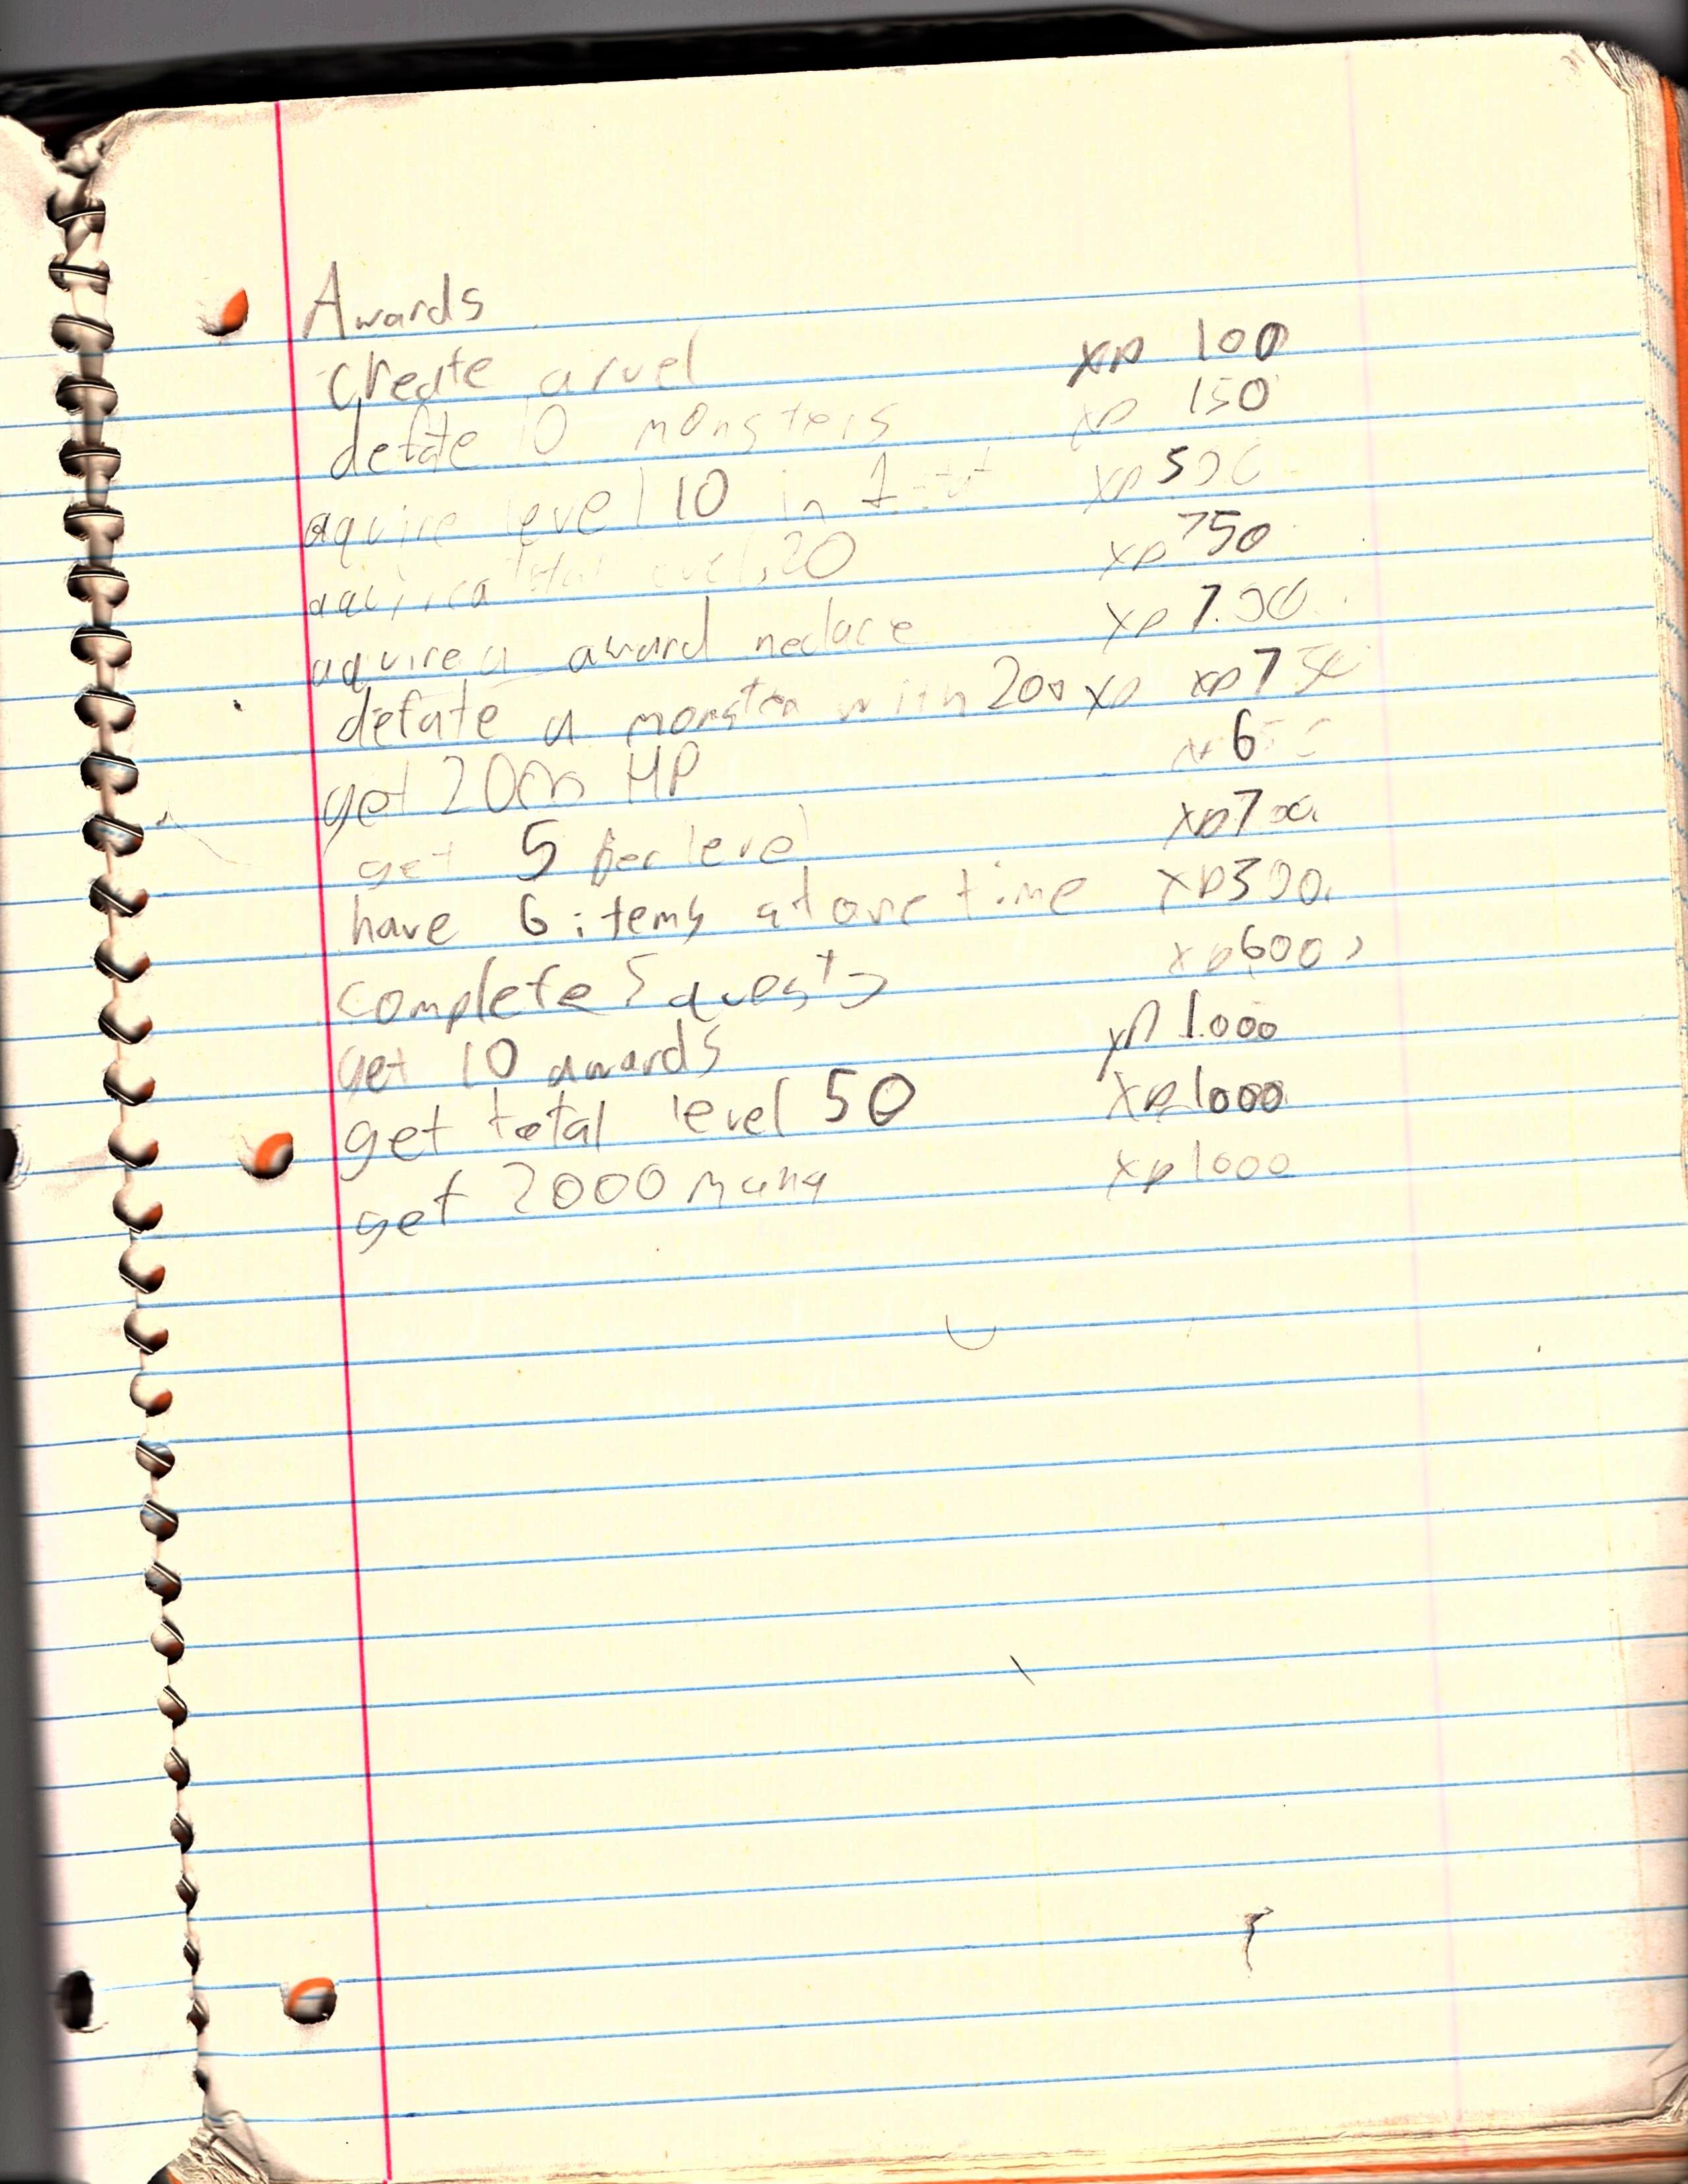 Awards
create a ruel xp 100
defate 10 monsters xp 150
aquire level 10 in 1 xp 500
aquire a total level 20 xp 750
aquire a award neclace xp
defate a monster with 200 xp xp
get HP 6
get 5 per level xp
have 6 items at one time xp 300
complete 5 quests xp 600
get 10 awards xp 1.000
get total level 50 xp 1000
get 2000 mana xp 1000